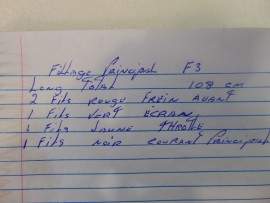 Filage Principal F3
Long Total 108 cm
2 Fils Rouge Frein Avant
1 Fils Vert Ecran
1 Fils Jaune Throttle
1 Fils Noir Courant Principal